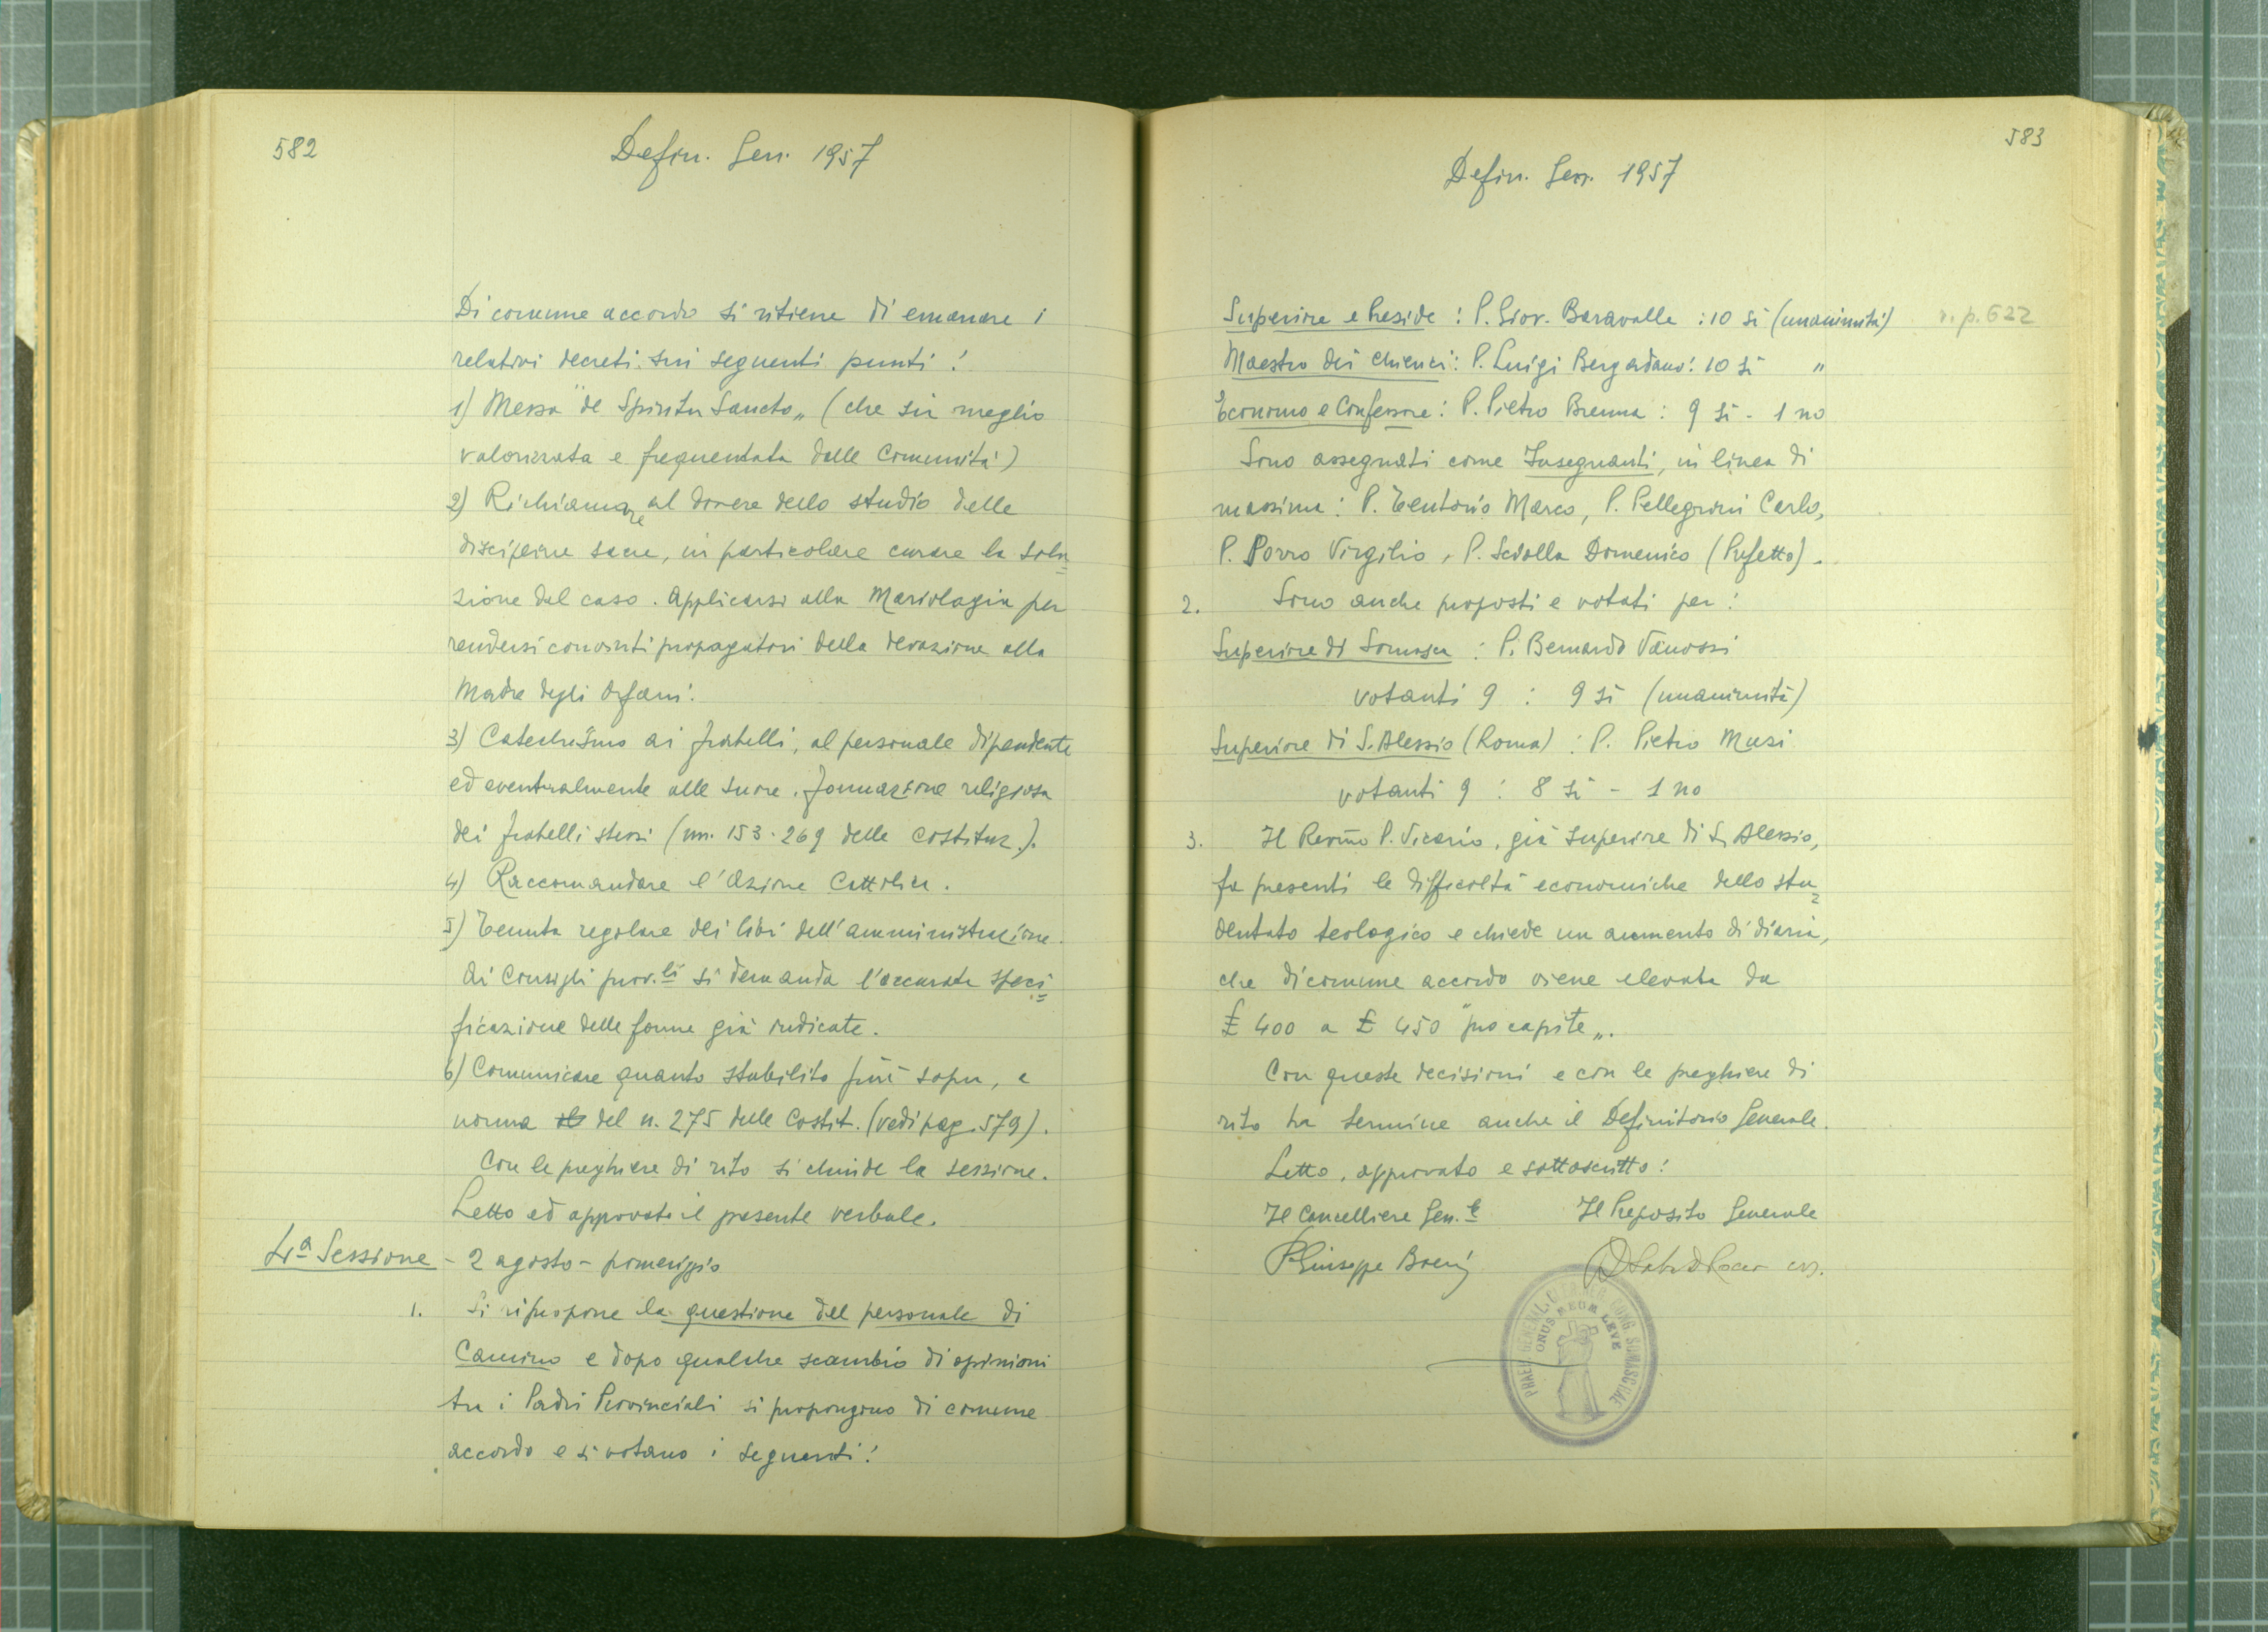 582
Defin. Gen. 1957
Di comune accordo si ritiene di emanare i
relativi decreti sui seguenti punti:
1) Messa "de Spiritu Sancto„ (che sia meglio
valorizzata e frequentata dalle Comunità)
2) Richiamare al dovere dello studio delle
discipline sacre, in particolare curare la solu=
zione del caso. Applicarsi alla Mariologia per
rendersi convinti propagatori della devozione alla
Madre degli Orfani.
3) Catechismo ai fratelli, al personale dipendente
ed eventualmente alle suore. Formazione religiosa
dei fratelli stessi (nn. 153-269 delle Costituz.).
4) Raccomandare l'Azione Cattolica.
5) Tenuta regolare dei libri dell'amministrazione.
Ai Consigli prov.li si demanda l'accurata speci=
ficazione delle forme già indicate.
6) Comunicare quanto stabilito più sopra, a
norma del n. 275 delle Costit. (vedi pag. 579).
Con le preghiere di rito si chiude la sessione.
Letto ed approvato il presente verbale.
4ª Sessione - 2 agosto - pomeriggio
1. Si ripropone la questione del personale di
Camino e dopo qualche scambio di opinioni
tra i Padri Provinciali si propongono di comune
accordo e si votano i seguenti:
583
Defin. Gen. 1957
Superiore e Preside : P. Giov. Baravalle : 10 sì (unanimità) v. p. 622
Maestro dei chierici : P. Luigi Bergadano : 10 sì "
Economo e Confessore : P. Pietro Brenna : 9 sì - 1 no
Sono assegnati come Insegnanti, in linea di
massima : P. Tentorio Marco, P. Pellegrini Carlo,
P. Porro Virgilio, P. Sciolla Domenico (Prefetto).
2. Sono anche proposti e votati per :
Superiore di Somasca : P. Bernardo Vanossi
votanti 9 : 9 sì (unanimità)
Superiore di S. Alessio (Roma) : P. Pietro Musi
votanti 9 : 8 sì - 1 no
3. Il Rev.mo P. Vicario, già superiore di S. Alessio,
fa presenti le difficoltà economiche dello stu=
dentato teologico e chiede un aumento di diaria,
che di comune accordo viene elevata da
£ 400 a £ 450 "pro capite„.
Con queste decisioni e con le preghiere di
rito ha termine anche il Definitorio Generale.
Letto, approvato e sottoscritto :
Il Cancelliere Gen.le Il Preposito Generale
P. Giuseppe
PRAEP. GENERAL. CONG. SOMASCHAE
ONUS MEUM LEVE